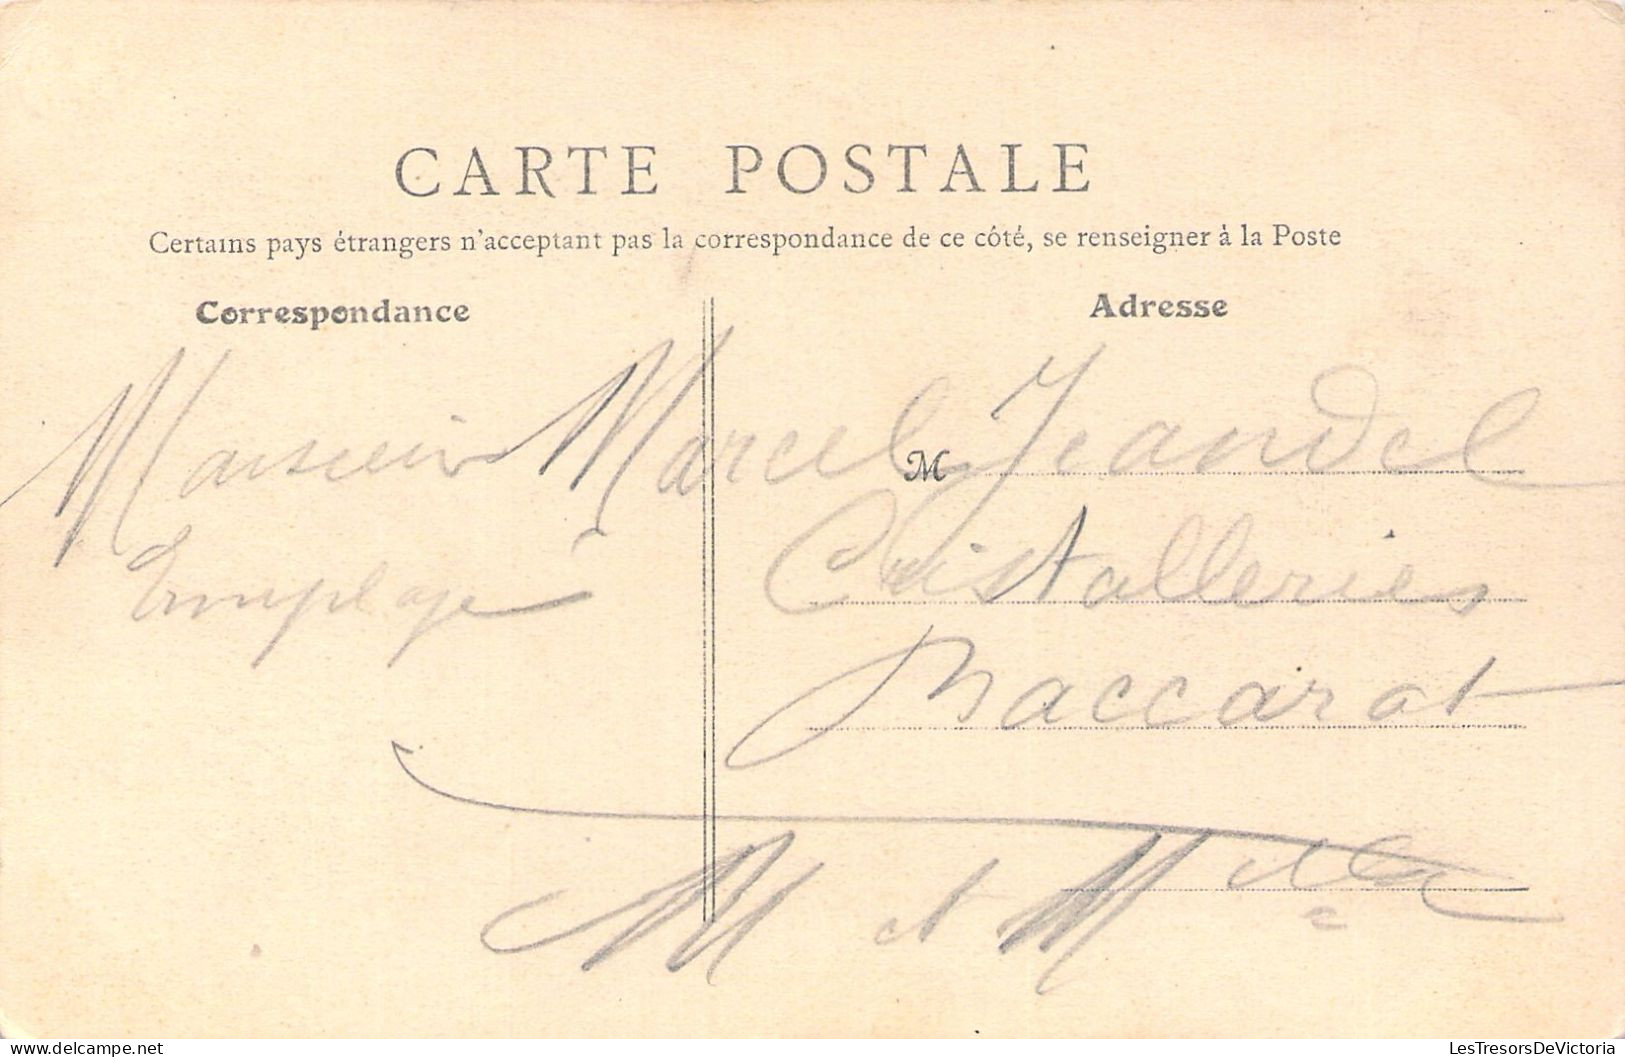 CARTE POSTALE
Certains pays étrangers n'acceptant pas la correspondance de ce côté, se renseigner à la Poste
Correspondance
Adresse
Monsieur Marcel Jeandel
M
Employé
Cristalleries
Baccarat
M et M
LesTresorsDeVictoria